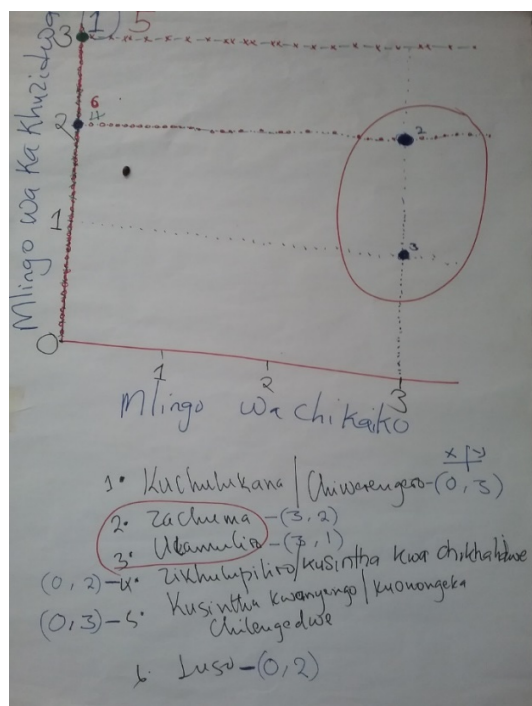 3 (1) 5
6
2 4
2
1
3
0
1 2 3
Mlingo wa ka Khuzidwa
Mlingo wa chikaiko
x | y
1. Kuchulukana / Chiwerengero - (0, 3)
2. Zachuma - (3, 2)
3. Utsamuliro - (3, 1)
(0, 2) - 4. Zikhulupiliro / kusintha kwa
(0, 3) - 5. Kusintha kwanyengo / kuonongeka
Chilengedwe
6. Luso - (0, 2)